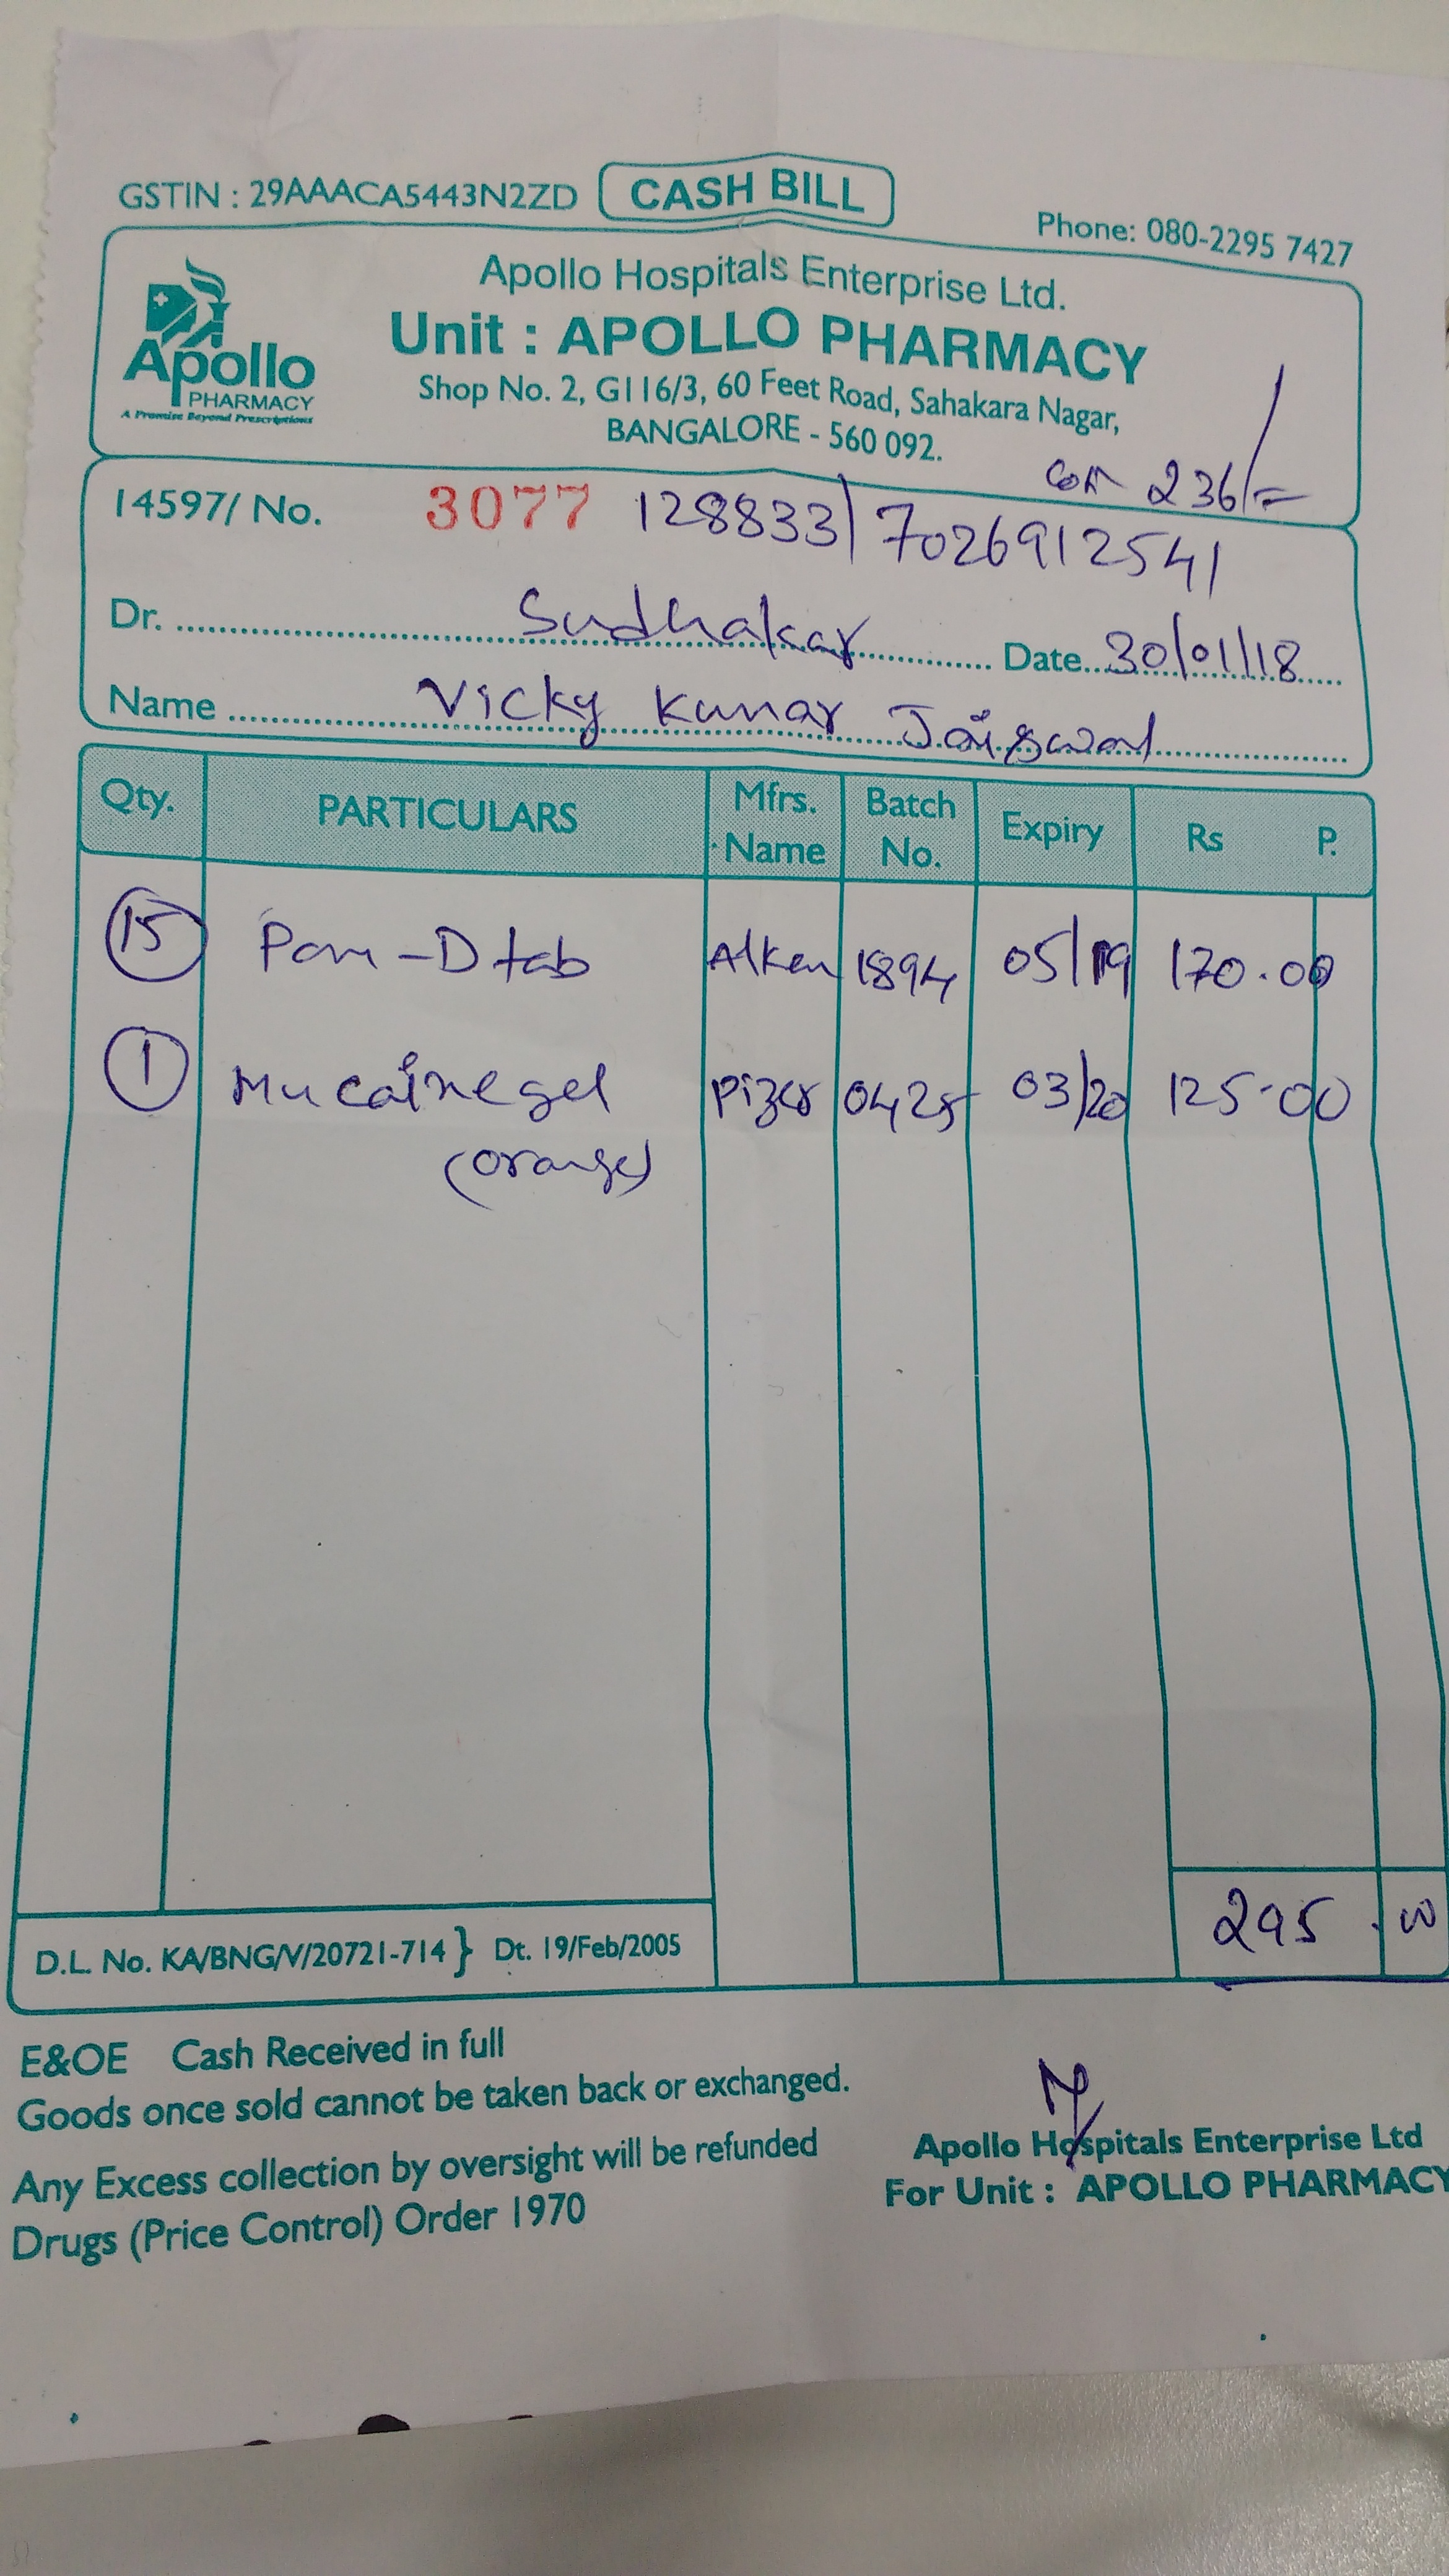 GSTIN : 29AAACA5443N2ZD CASH BILL Phone: 080-2295 7427
Apollo Hospitals Enterprise Ltd.
Unit : APOLLO PHARMACY
Apollo
PHARMACY
A Promise Beyond Prescriptions
Shop No. 2, G116/3, 60 Feet Road, Sahakara Nagar,
BANGALORE - 560 092.
236/=
14597/ No. 3077 128833/7026912541
Dr. Sudhakar Date 30/01/18
Name Vicky Kumar Jaiswal
Qty. PARTICULARS Mfrs. Name Batch No. Expiry Rs P.
15 Pan-D tab Alken 1894 05/19 170.00
1 Mucaine gel Pizer 0425 03/20 125.00
(orange)
295.00
D.L. No. KA/BNG/V/20721-714 } Dt. 19/Feb/2005
E&OE Cash Received in full
Goods once sold cannot be taken back or exchanged.
Any Excess collection by oversight will be refunded
Drugs (Price Control) Order 1970
Apollo Hospitals Enterprise Ltd
For Unit : APOLLO PHARMACY